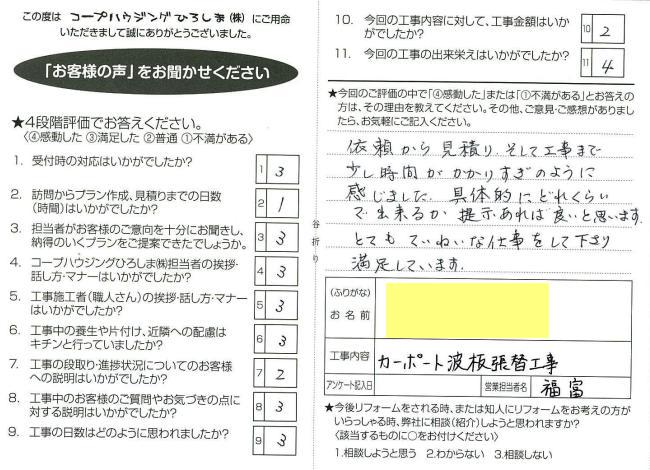 この度は コープハウジングひろしま(株) にご用命
いただきまして誠にありがとうございました。
「お客様の声」をお聞かせください
★4段階評価でお答えください。
〈④感動した ③満足した ②普通 ①不満がある〉
1. 受付時の対応はいかがでしたか？ 1 3
2. 訪問からプラン作成、見積りまでの日数
(時間)はいかがでしたか？ 2 1
3. 担当者がお客様のご意向を十分にお聞きし、
納得のいくプランをご提案できたでしょうか。 3 3
4. コープハウジングひろしま㈱担当者の挨拶・
話し方・マナーはいかがでしたか？ 4 3
5. 工事施工者(職人さん)の挨拶・話し方・マナー
はいかがでしたか？ 5 3
6. 工事中の養生や片付け、近隣への配慮は
キチンと行っていましたか？ 6 3
7. 工事の段取り・進捗状況についてのお客様
への説明はいかがでしたか？ 7 2
8. 工事中のお客様のご質問やお気づきの点に
対する説明はいかがでしたか？ 8 3
9. 工事の日数はどのように思われましたか？ 9 3
谷折り
10. 今回の工事内容に対して、工事金額はいか
がでしたか？ 10 2
11. 今回の工事の出来栄えはいかがでしたか？ 11 4
★今回のご評価の中で「④感動した」または「①不満がある」とお答え
の方は、その理由を教えてください。その他、ご意見・ご感想がありまし
たら、お気軽にご記入ください。
依頼から見積り、そして工事まで
少し時間がかかりすぎのように
感じました。具体的にどれくらい
で出来るか 提示あれば良いと思います。
とてもていねいな仕事をして下さり
満足しています。
(ふりがな)
お名前
工事内容 カーポート波板張替工事
アンケート記入日 営業担当者名 福富
★今後リフォームをされる時、または知人にリフォームをお考えの方が
いらっしゃる時、弊社に相談(紹介)しようと思われますか？
〈該当するものに○をお付けください〉
1.相談しようと思う 2.わからない 3.相談しない